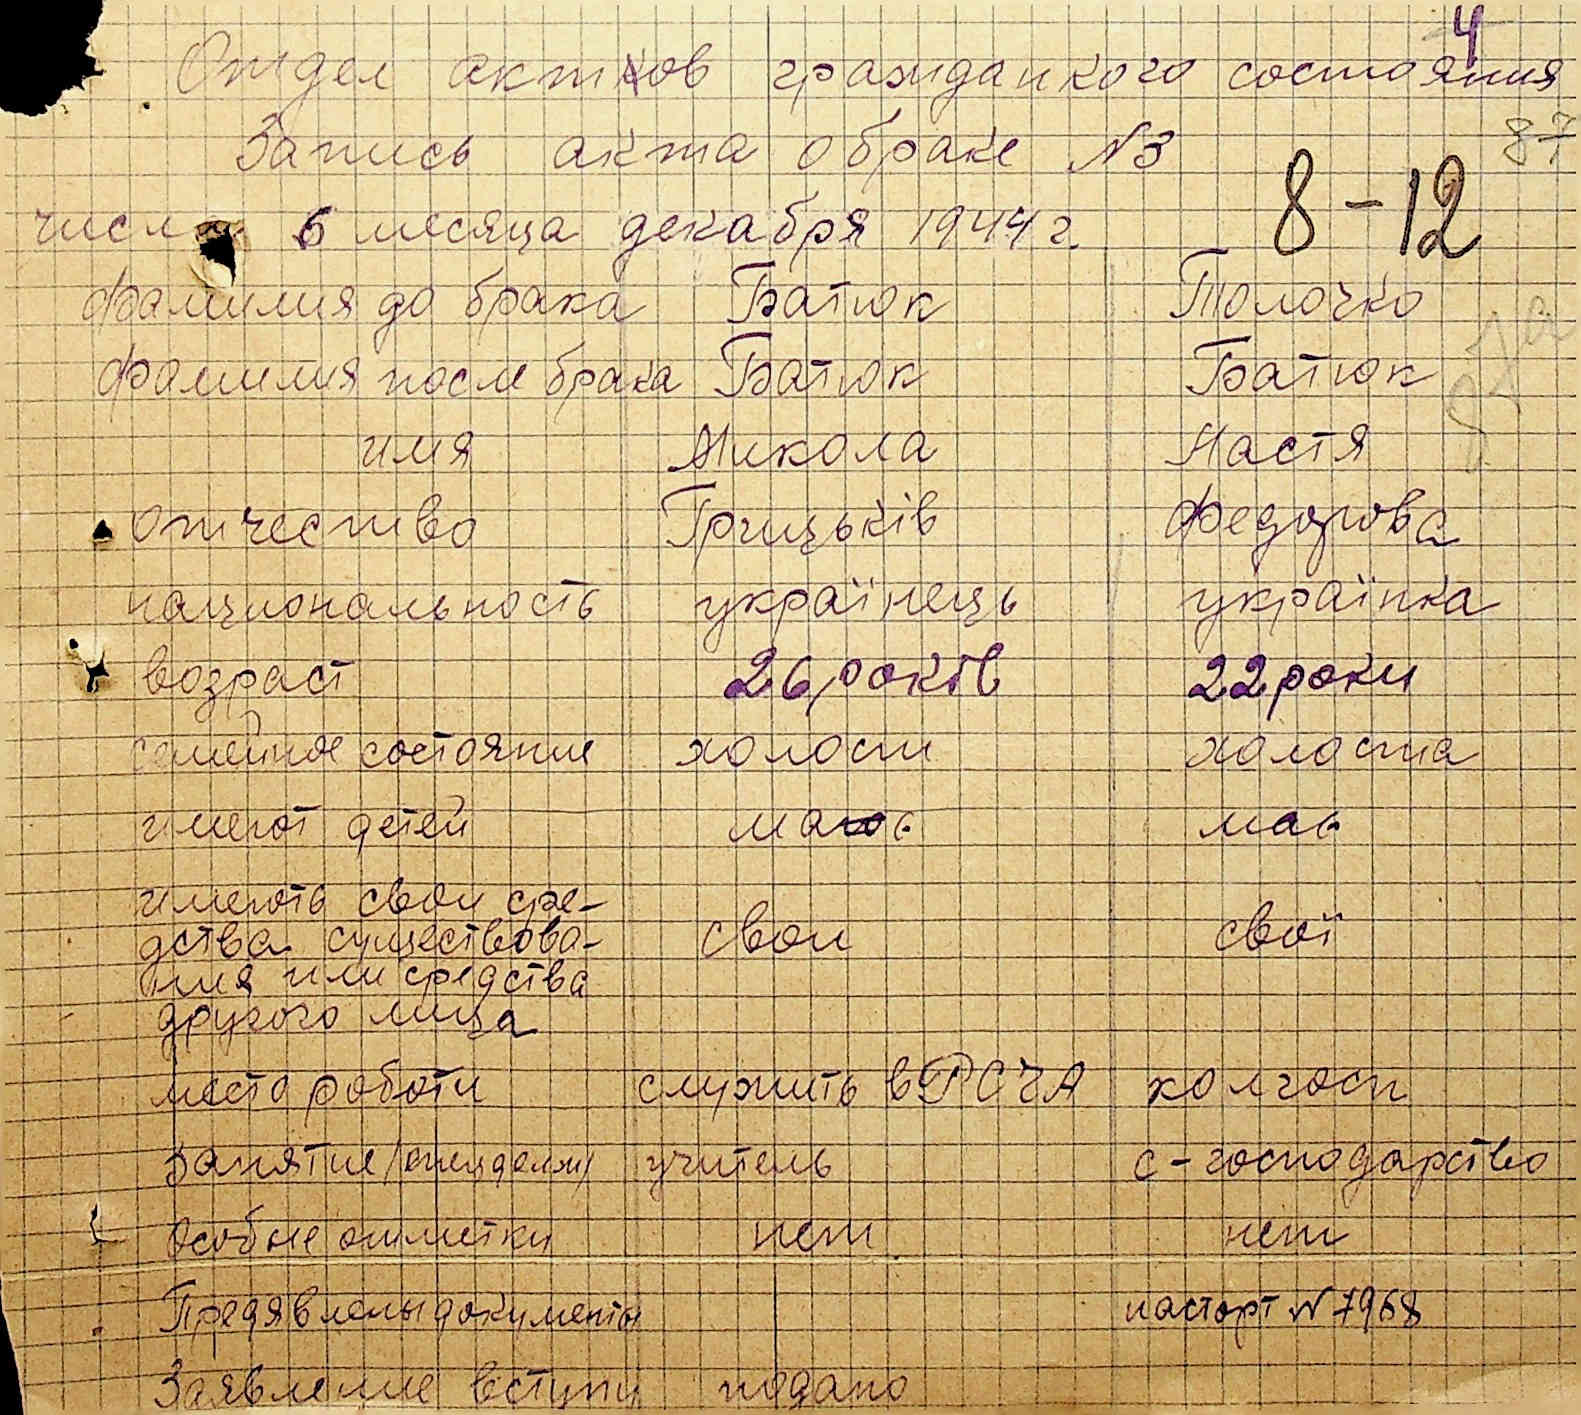 4
Отдел актов гражданкого состояния
87
Запись акта о браке №3
8-12
число 6 месяца декабря 1944 г.
фамилия до брака Батюк Толочко
фамилия после брака Батюк Батюк
имя Микола Настя
отчество Грицьків Федорова
национальность українець українка
возраст 26 років 22 роки
семейное состояние холост холоста
имеют детей
имеють свои сре-
дства существова- свои свої
ния или средства
другого лица
место роботи служить в РСЧА колгосп
Занятие учитель с-господарство
особые отметки нет нет
Предявлены документы паспорт №7968
Заявление вступи подано